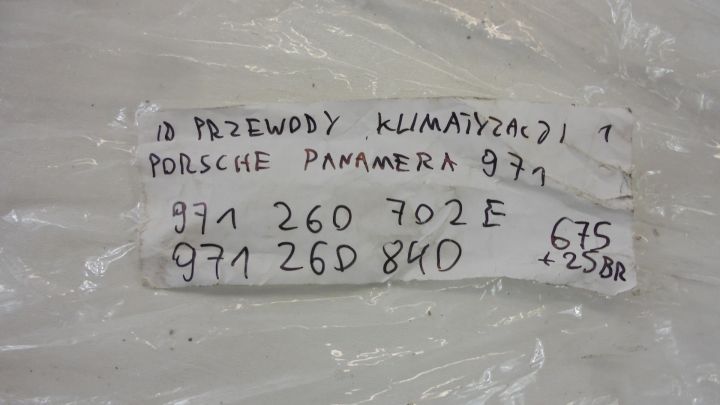 10 PRZEWODY KLIMATYZACJI 1
PORSCHE PANAMERA 971
971 260 702 E
971 260 840
675
+25BR